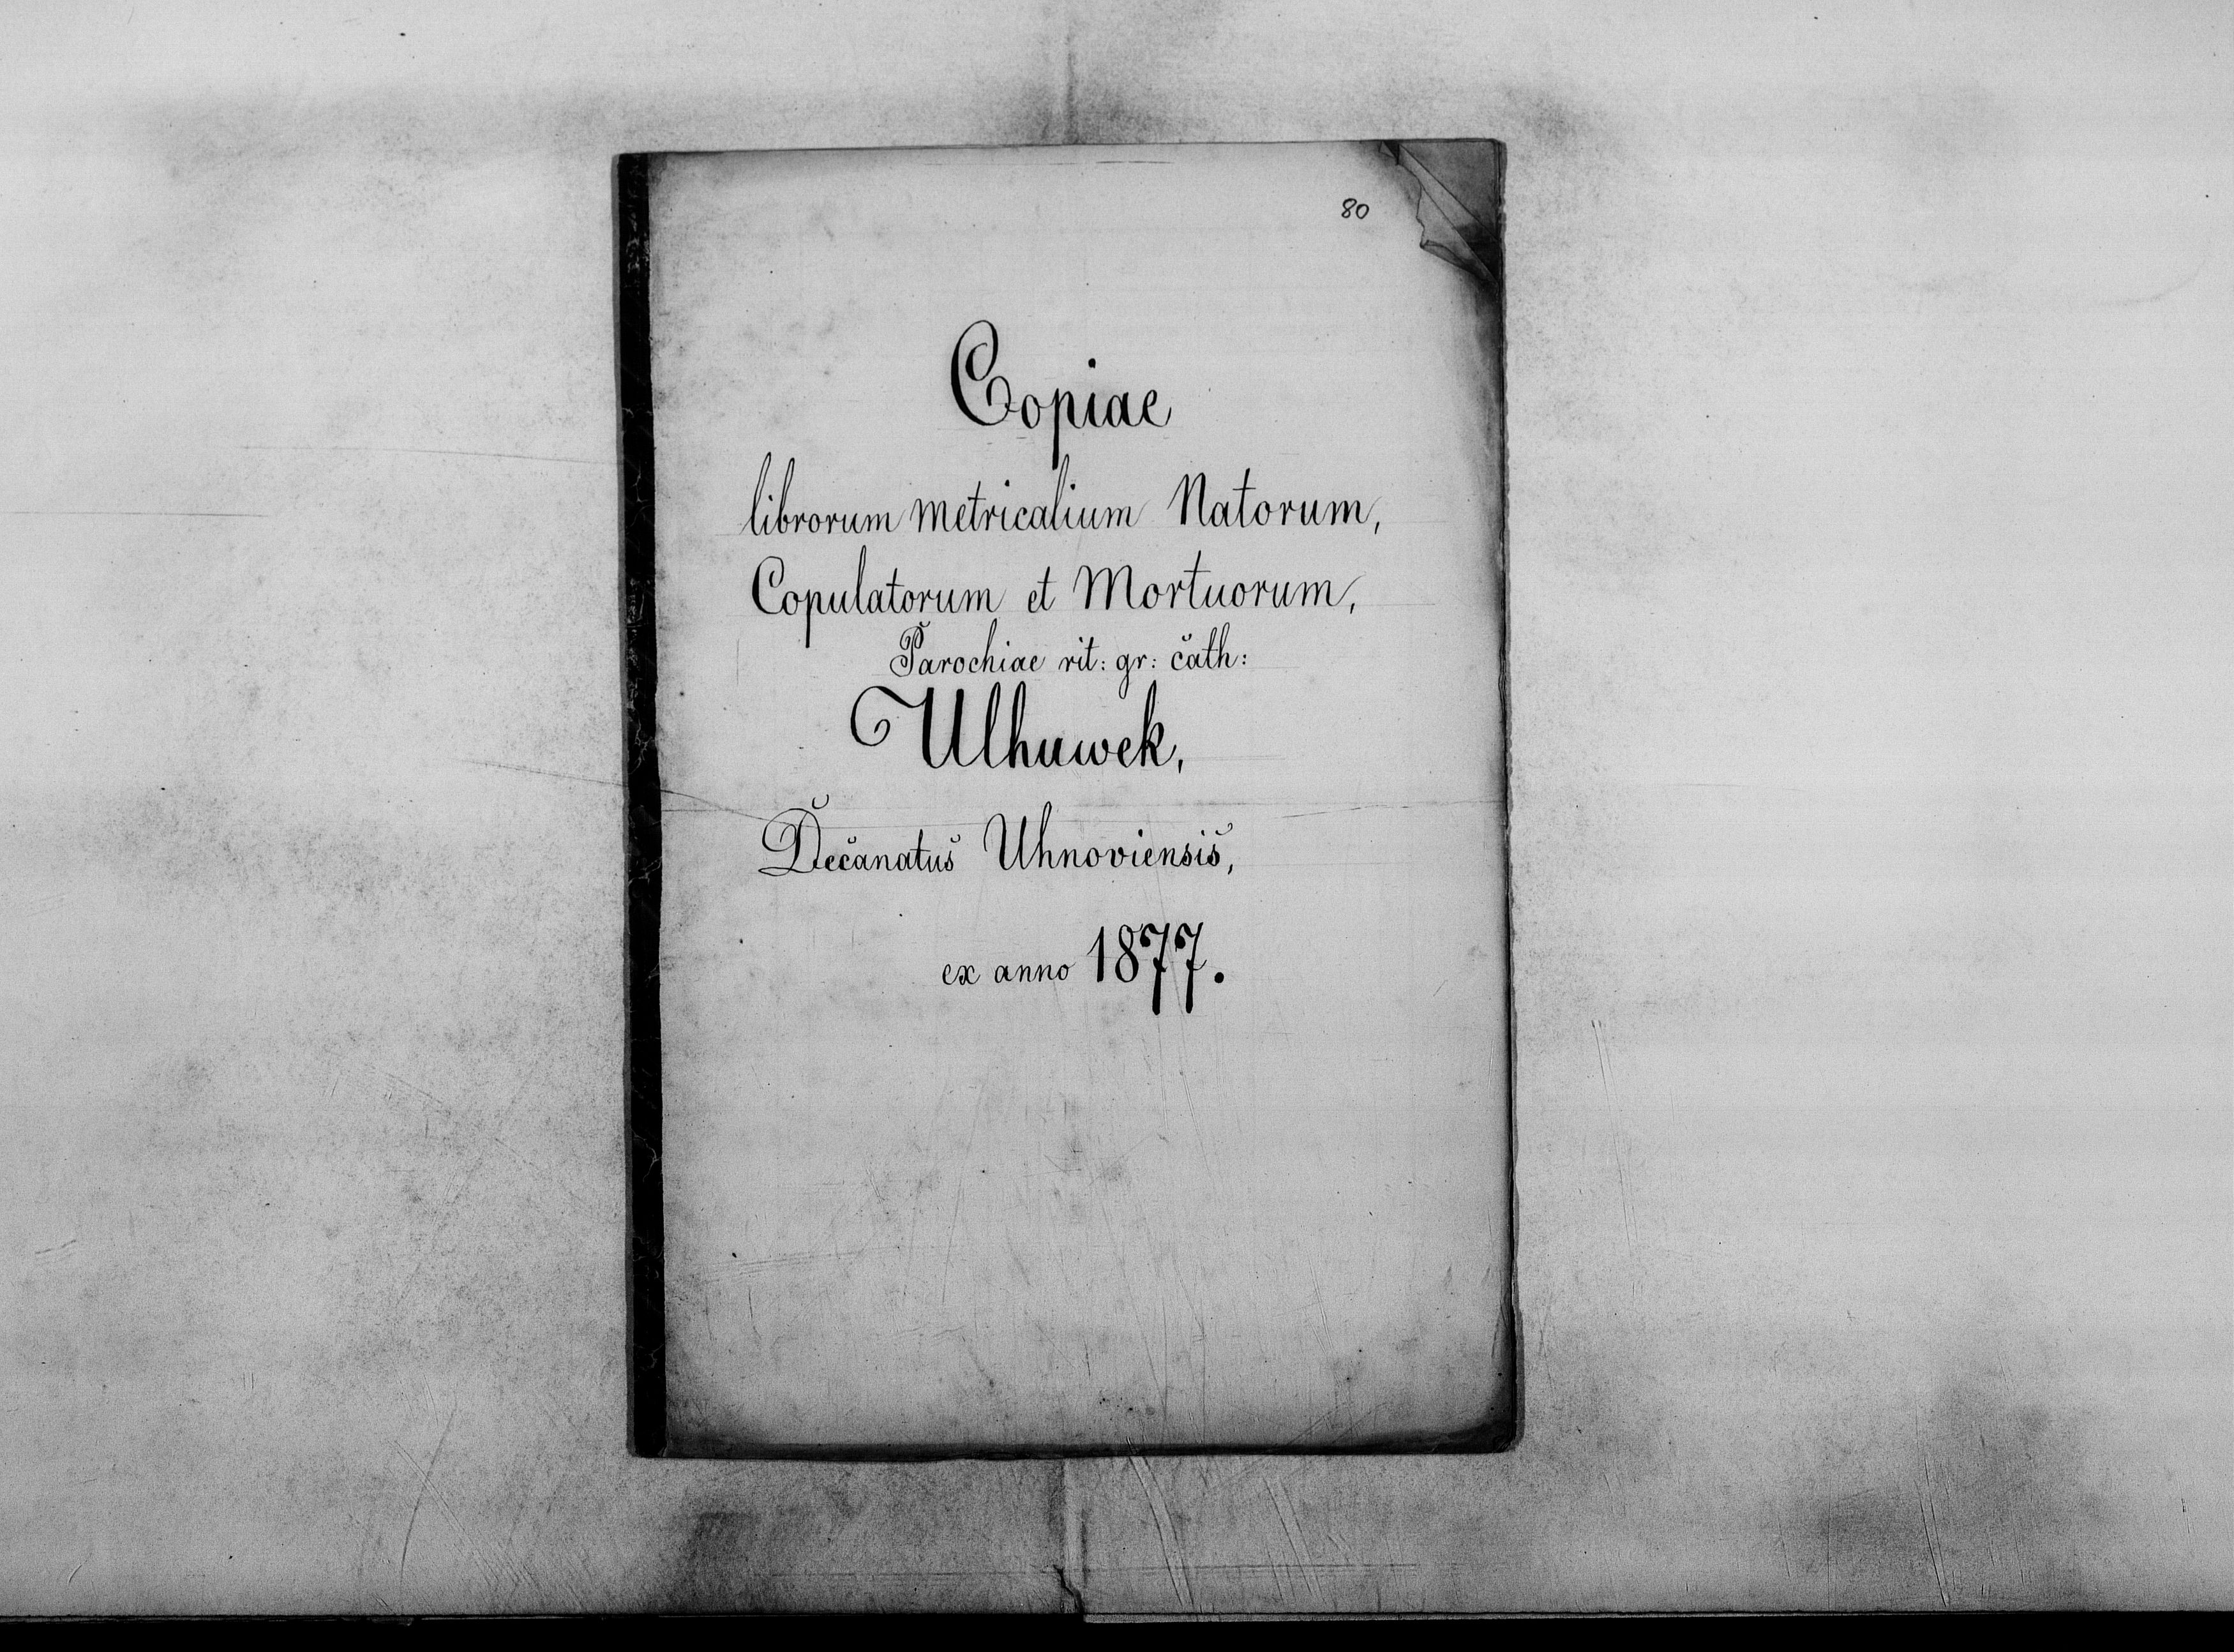 80
Copiae
librorum metricalium Natorum,
Copulatorum et Mortuorum,
Parochiae rit: gr: čath:
Ulhuwek,
Dečanatuš Uhnoviensiš,
ex anno 1877.